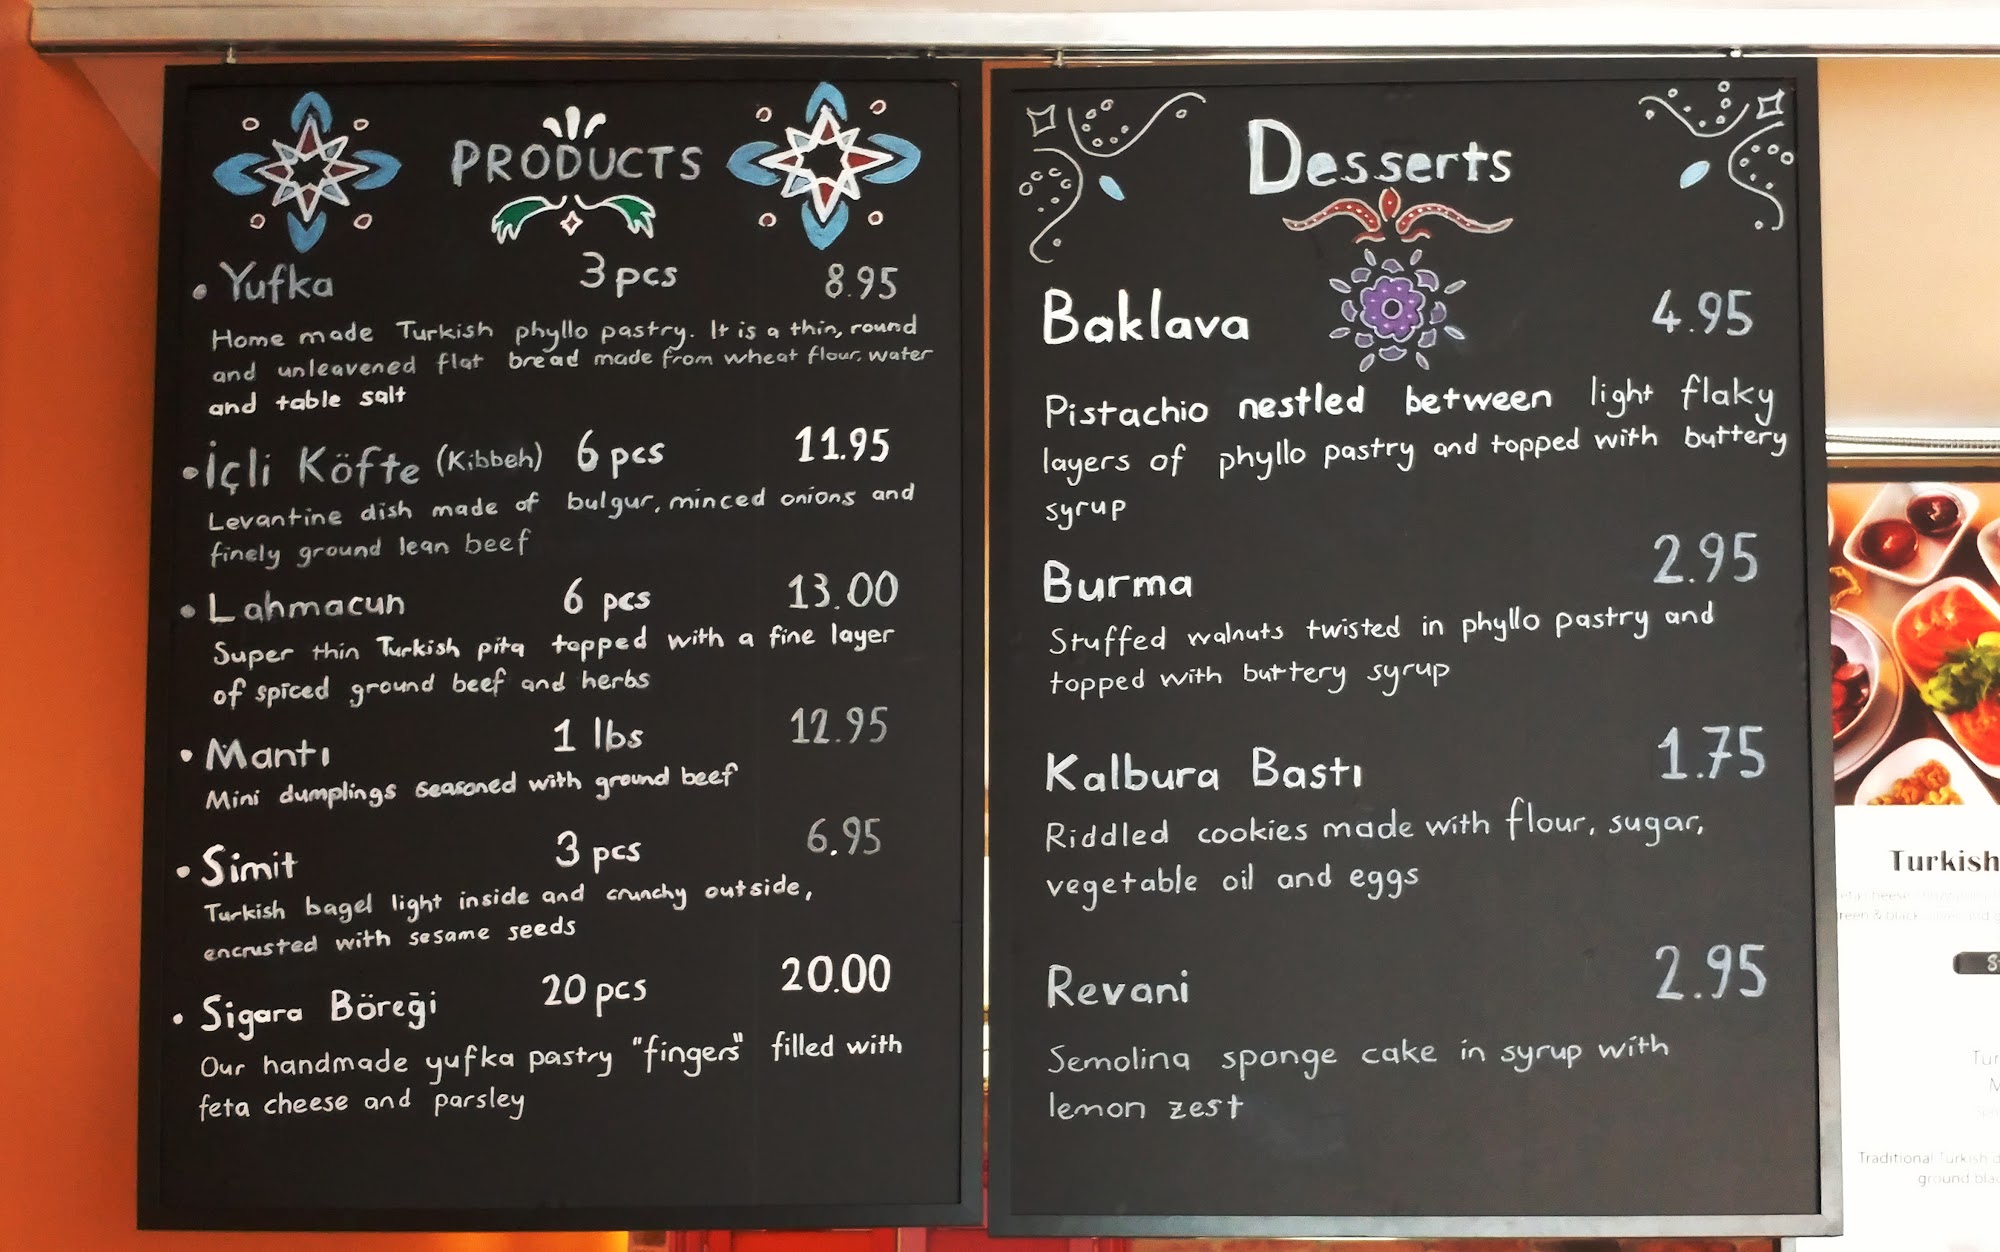 PRODUCTS
• Yufka 3 pcs 8.95
Home made Turkish phyllo pastry. It is a thin, round
and unleavened flat bread made from wheat flour, water
and table salt
• İçli Köfte (Kibbeh) 6 pcs 11.95
Levantine dish made of bulgur, minced onions and
finely ground lean beef
• Lahmacun 6 pcs 13.00
Super thin Turkish pita topped with a fine layer
of spiced ground beef and herbs
• Mantı 1 lbs 12.95
Mini dumplings seasoned with ground beef
• Simit 3 pcs 6.95
Turkish bagel light inside and crunchy outside,
encrusted with sesame seeds
• Sigara Böreği 20 pcs 20.00
Our handmade yufka pastry "fingers" filled with
feta cheese and parsley
Desserts
Baklava 4.95
Pistachio nestled between light flaky
layers of phyllo pastry and topped with buttery
syrup
Burma 2.95
Stuffed walnuts twisted in phyllo pastry and
topped with buttery syrup
Kalbura Bastı 1.75
Riddled cookies made with flour, sugar,
vegetable oil and eggs
Revani 2.95
Semolina sponge cake in syrup with
lemon zest
Turkish
Traditional Turkish
ground